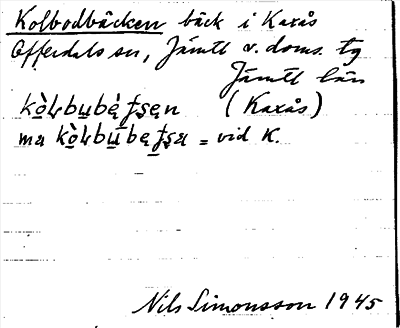 Kolbodbäcken bäck i Kaxås
Offerdals sn, Jämtl v. doms. tg
Jämtl län
kòƚbu̱bę̀ʄʂęn (Kaxås)
ma kòƚbu̱̅bęʄʂa = vid K.
Nils Simonsson 1945